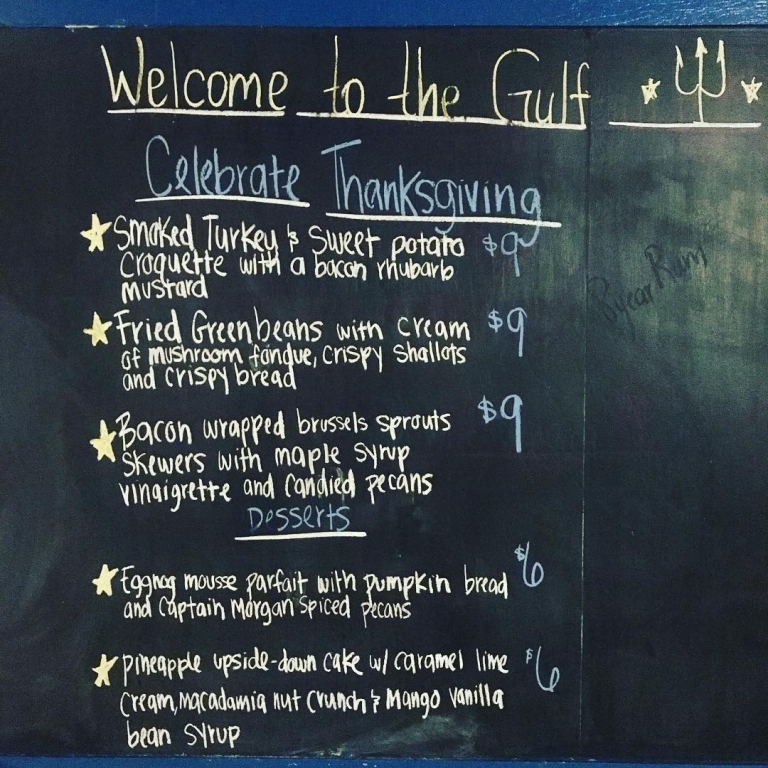 Welcome to the Gulf
Celebrate Thanksgiving
Smoked Turkey & Sweet potato $9
Croquette with a bacon rhubarb
mustard
Fried Greenbeans with cream $9
of mushroom fondue, crispy shallots
and crispy bread
Bacon wrapped brussels sprouts $9
Skewers with maple syrup
vinaigrette and candied pecans
Desserts
Eggnog mousse parfait with pumpkin bread $6
and Captain Morgan Spiced pecans
pineapple upside-down cake w/ caramel lime $6
cream, macadamia nut crunch & Mango vanilla
bean syrup
year Rum